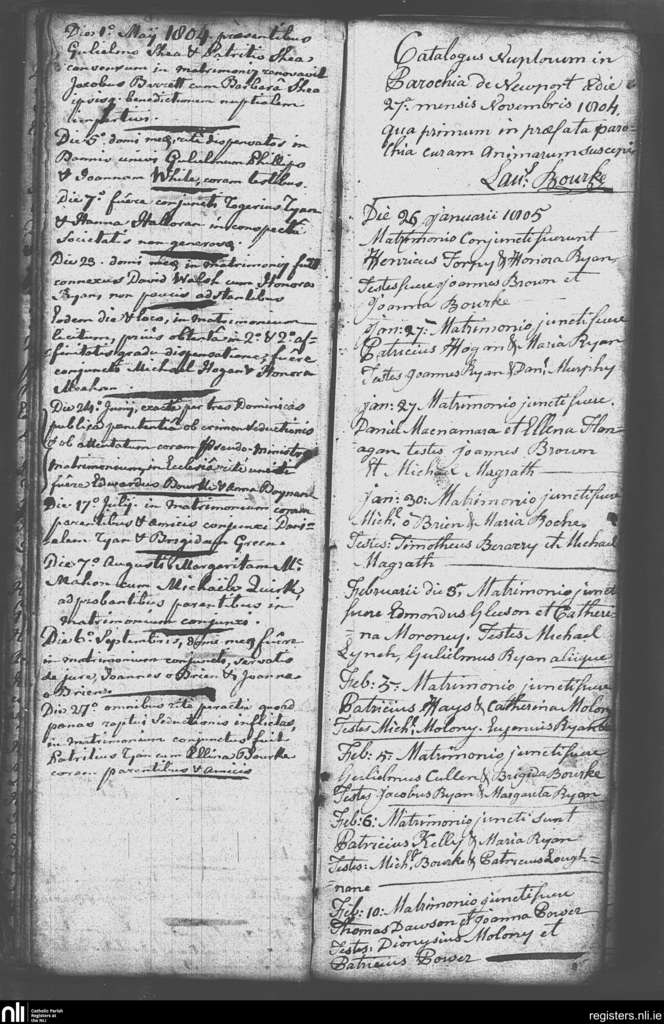 Die 1º Maÿ 1804 præsentibus
Gulielmo Shea & Patritio Shea
conversum in matrimoniũ renovavit
Jacobus Barrett cum Barbarâ Shea
benedictionem nuptialem
Die 5º domi meæ, rite dispensatos in
Bannis Gulielmum Phillips
& Joannam White, coram testibus.
Die 7º fuêre conjuncti Rogerius Ryan
& Hanna Halloran in conspectu
Societatis non generosæ.
Die 23. domi meæ in matrimoniũ fuit
connexus David Walsh cum Honora
Ryan, non paucis adstantibus
Eodem die & loco, in matrimonium
licitum, prius obtentâ in 2º & 2º af-
finitatis gradu dispensatione, fuêre
conjuncti Michael Hogan & Honora
Meahan.
Die 24º Junij, exacta per tres Dominicas
publica pœnitentia ob crimen seductionis
& ob attentatum coram Pseudo-ministro
matrimonium, in Ecclesiâ rite uniti
fuêre Edwardus Bourke & Anna
Die 17º Julij in matrimonium coram
parentibus & amicis conjunxi Dani-
elem Ryan & Brigidam Green.
Die 7º Augusti Margaritam Mc
Mahon cum Michaële Quirk,
adprobantibus parentibus in
matrimonium conjunxi.
Die 6º Septembris, domi meæ fuêre
in matrimonium conjuncti, servato
de jure, Joannes o Brien & Joanna
o Brien.
Die 27º omnibus rite peractis quoad
pœnas raptûs seductionis inflictas,
in matrimonium conjunctus fuit
Patritius Ryan cum Ellina Bourke
coram parentibus & amicis
Catalogus Nuptorum in
Parochia de Newport a die
27ª mensis Novembris 1804,
qua primum in præfata paro=
chia curam animarum suscepi
Lau: Bourke
Die 26 Januarii 1805
Matrimonio Conjuncti fuerunt
Henricus Torny & Honora Ryan
Testes fuere Joannes Brown et
Joanna Bourke
Jan: 27: Matrimonio juncti fuere
Patricius Hogan & Maria Ryan
Testes Joannes Ryan & Danl Murphy
Jan: 27 Matrimonio juncti fuere.
Daniel Macnamara et Ellena Flan-
agan testes Joannes Brown
Et Michael Magrath
Jan: 30: Matrimonio juncti fuere
Michl o Brien & Maria Roche
Testes: Timotheus Beravry et Michael
Magrath
Februarii die 5. Matrimonio juncti
fuere Edmondus Gleeson et Catheri-
na Moroney. Testes Michael
Lynch, Gulielmus Ryan aliique
Feb: 5. Matrimonio juncti fuere
Patricius Hays & Catherina Molony
Testes Michl Molony. Eugenius Ryan
Feb: 5: Matrimonio juncti fuere
Gulielmus Cullen & Brigida Bourke
Testes Jacobus Ryan & Margareta Ryan
Feb: 6: Matrimonio juncti sunt
Patricius Kelly & Maria Ryan
Testes: Michl Bourke & Patricius Lough-
nane
Feb: 10: Matrimonio juncti fuere
Thomas Dawson et Joanna Power
Testes: Dionysius Molony et
Patricius Power
nli Catholic Parish
Registers at
the NLI
registers.nli.ie